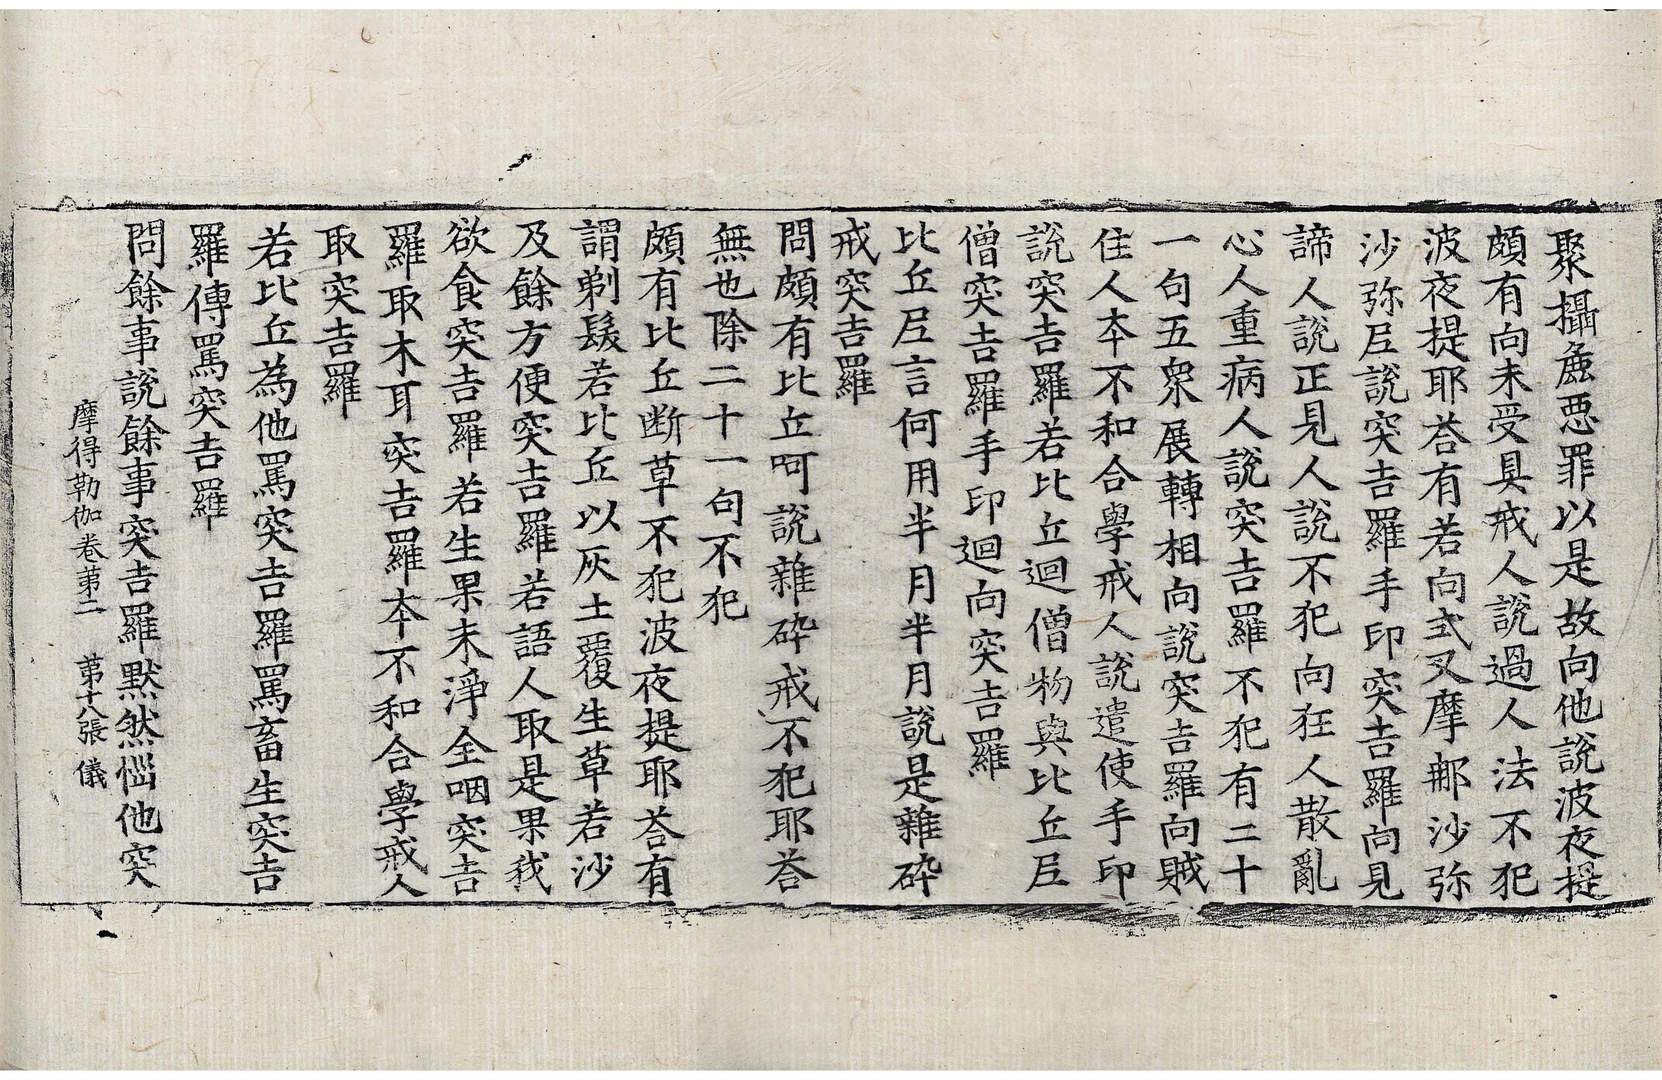 聚攝麁惡罪以是故向他說波夜提
頗有向未受具戒人說過人法不犯
波夜提耶荅有若向式叉摩那沙弥
沙弥尼說突吉羅手印突吉羅向見
諦人說正見人說不犯向狂人散亂
心人重病人說突吉羅不犯有二十
一句五衆展轉相向說突吉羅向賊
住人夲不和合學戒人說遣使手印
說突吉羅若比丘迴僧物與比丘尼
僧突吉羅手印迴向突吉羅
比丘尼言何用半月半月說是雜碎
戒突吉羅
問頗有比丘呵說雜碎戒不犯耶荅
無也除二十一句不犯
頗有比丘断草不犯波夜提耶荅有
謂剃髮若比丘以灰土覆生草若沙
及餘方便突吉羅若語人取是果我
欲食突吉羅若生果未淨全咽突吉
羅取木耳突吉羅夲不和合學戒人
取突吉羅
若比丘為他罵突吉羅罵畜生突吉
羅傳罵突吉羅
問餘事說餘事突吉羅默然惱他突
摩得勒伽卷苐二 苐十八張 儀